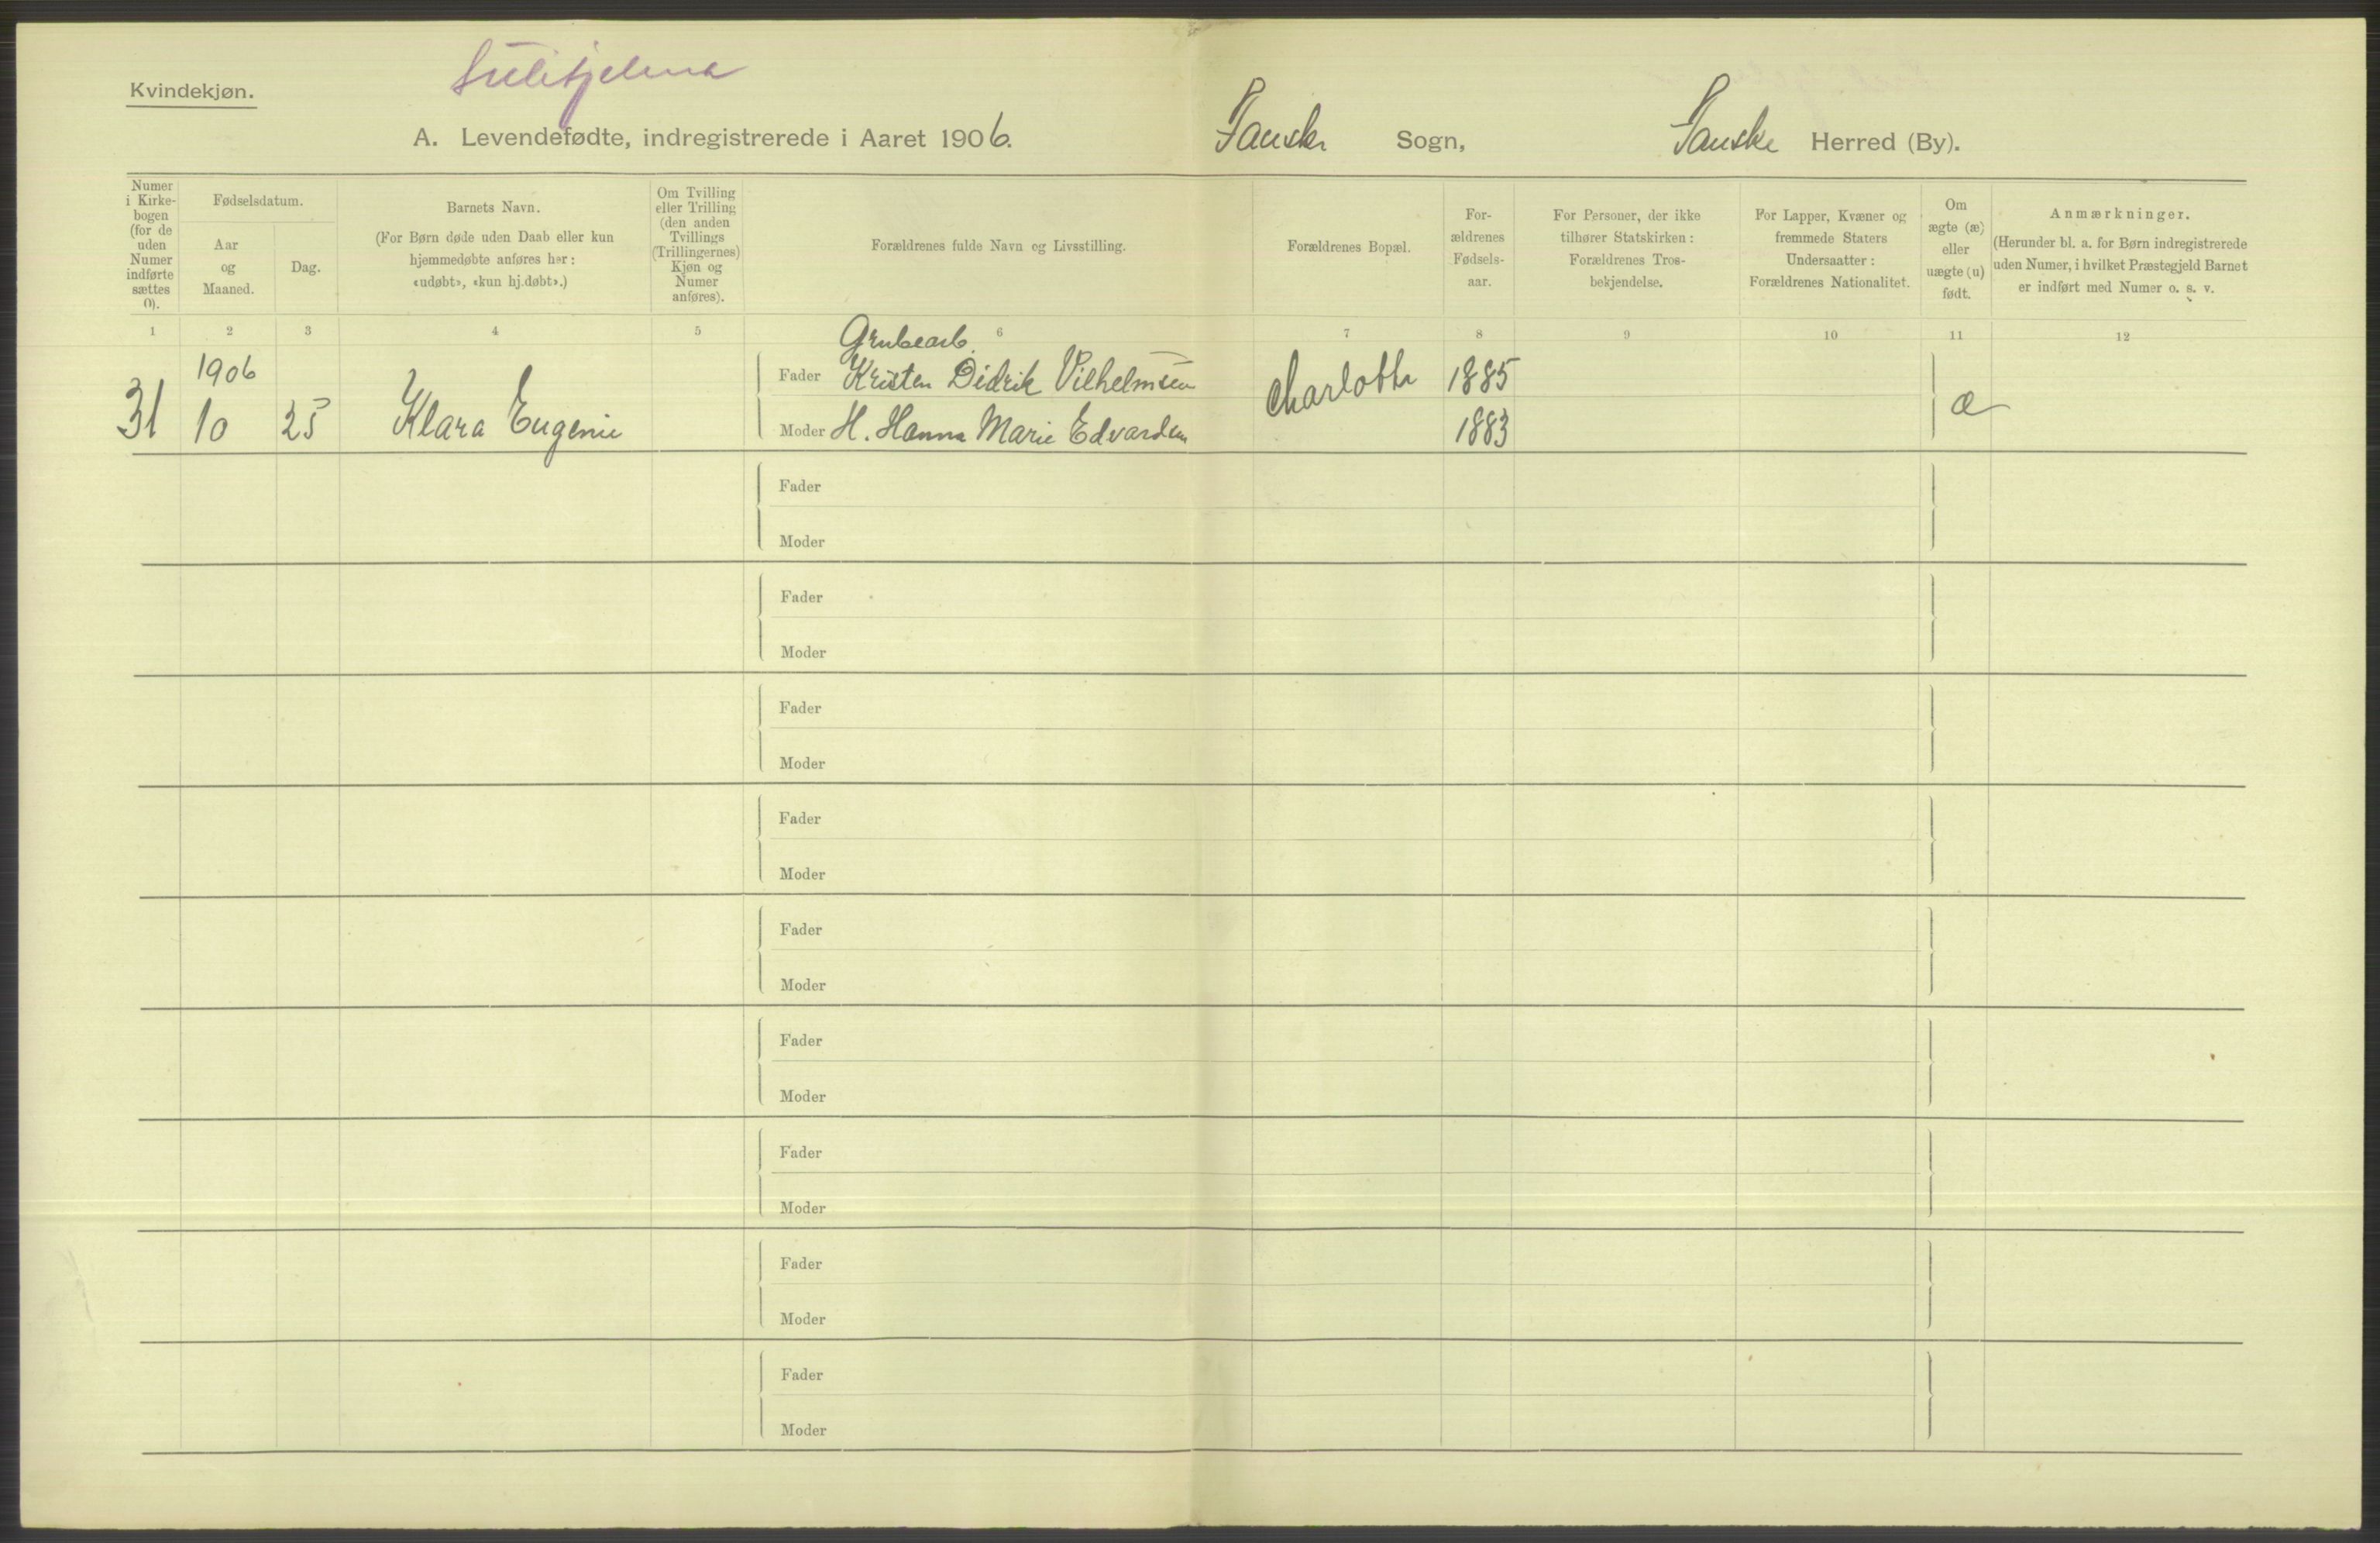 Kvindekjøn.
Sulitjelma
A. Levendefødte, indregistrerede i Aaret 1906.
Fauske Sogn,
Fauske Herred (By).
Numer
i Kirke-
bogen
(for de
uden
Numer
indførte
sættes
0).
Fødselsdatum.
Aar
og
Maaned.
Dag.
Barnets Navn.
(For Børn døde uden Daab eller kun
hjemmedøbte anføres her:
«udøbt», «kun hj.døbt».)
Om Tvilling
eller Trilling
(den anden
Tvillings
(Trillingernes)
Kjøn og
Numer
anføres).
Forældrenes fulde Navn og Livsstilling.
Forældrenes Bopæl.
For-
ældrenes
Fødsels-
aar.
For Personer, der ikke
tilhører Statskirken:
Forældrenes Tros-
bekjendelse.
For Lapper, Kvæner og
fremmede Staters
Undersaatter:
Forældrenes Nationalitet.
Om
ægte (æ)
eller
uægte (u)
født.
Anmærkninger.
(Herunder bl. a. for Børn indregistrerede
uden Numer, i hvilket Præstegjeld Barnet
er indført med Numer o. s. v.
1 2 3 4 5 6 7 8 9 10 11 12
Grubearb.
1906
Fader Kristen Didrik Vilhelmsen Charlotta 1885
31 10 25 Klara Eugenie æ
Moder H. Hanna Marie Edvardsen 1883
Fader
Moder
Fader
Moder
Fader
Moder
Fader
Moder
Fader
Moder
Fader
Moder
Fader
Moder
Fader
Moder
Fader
Moder